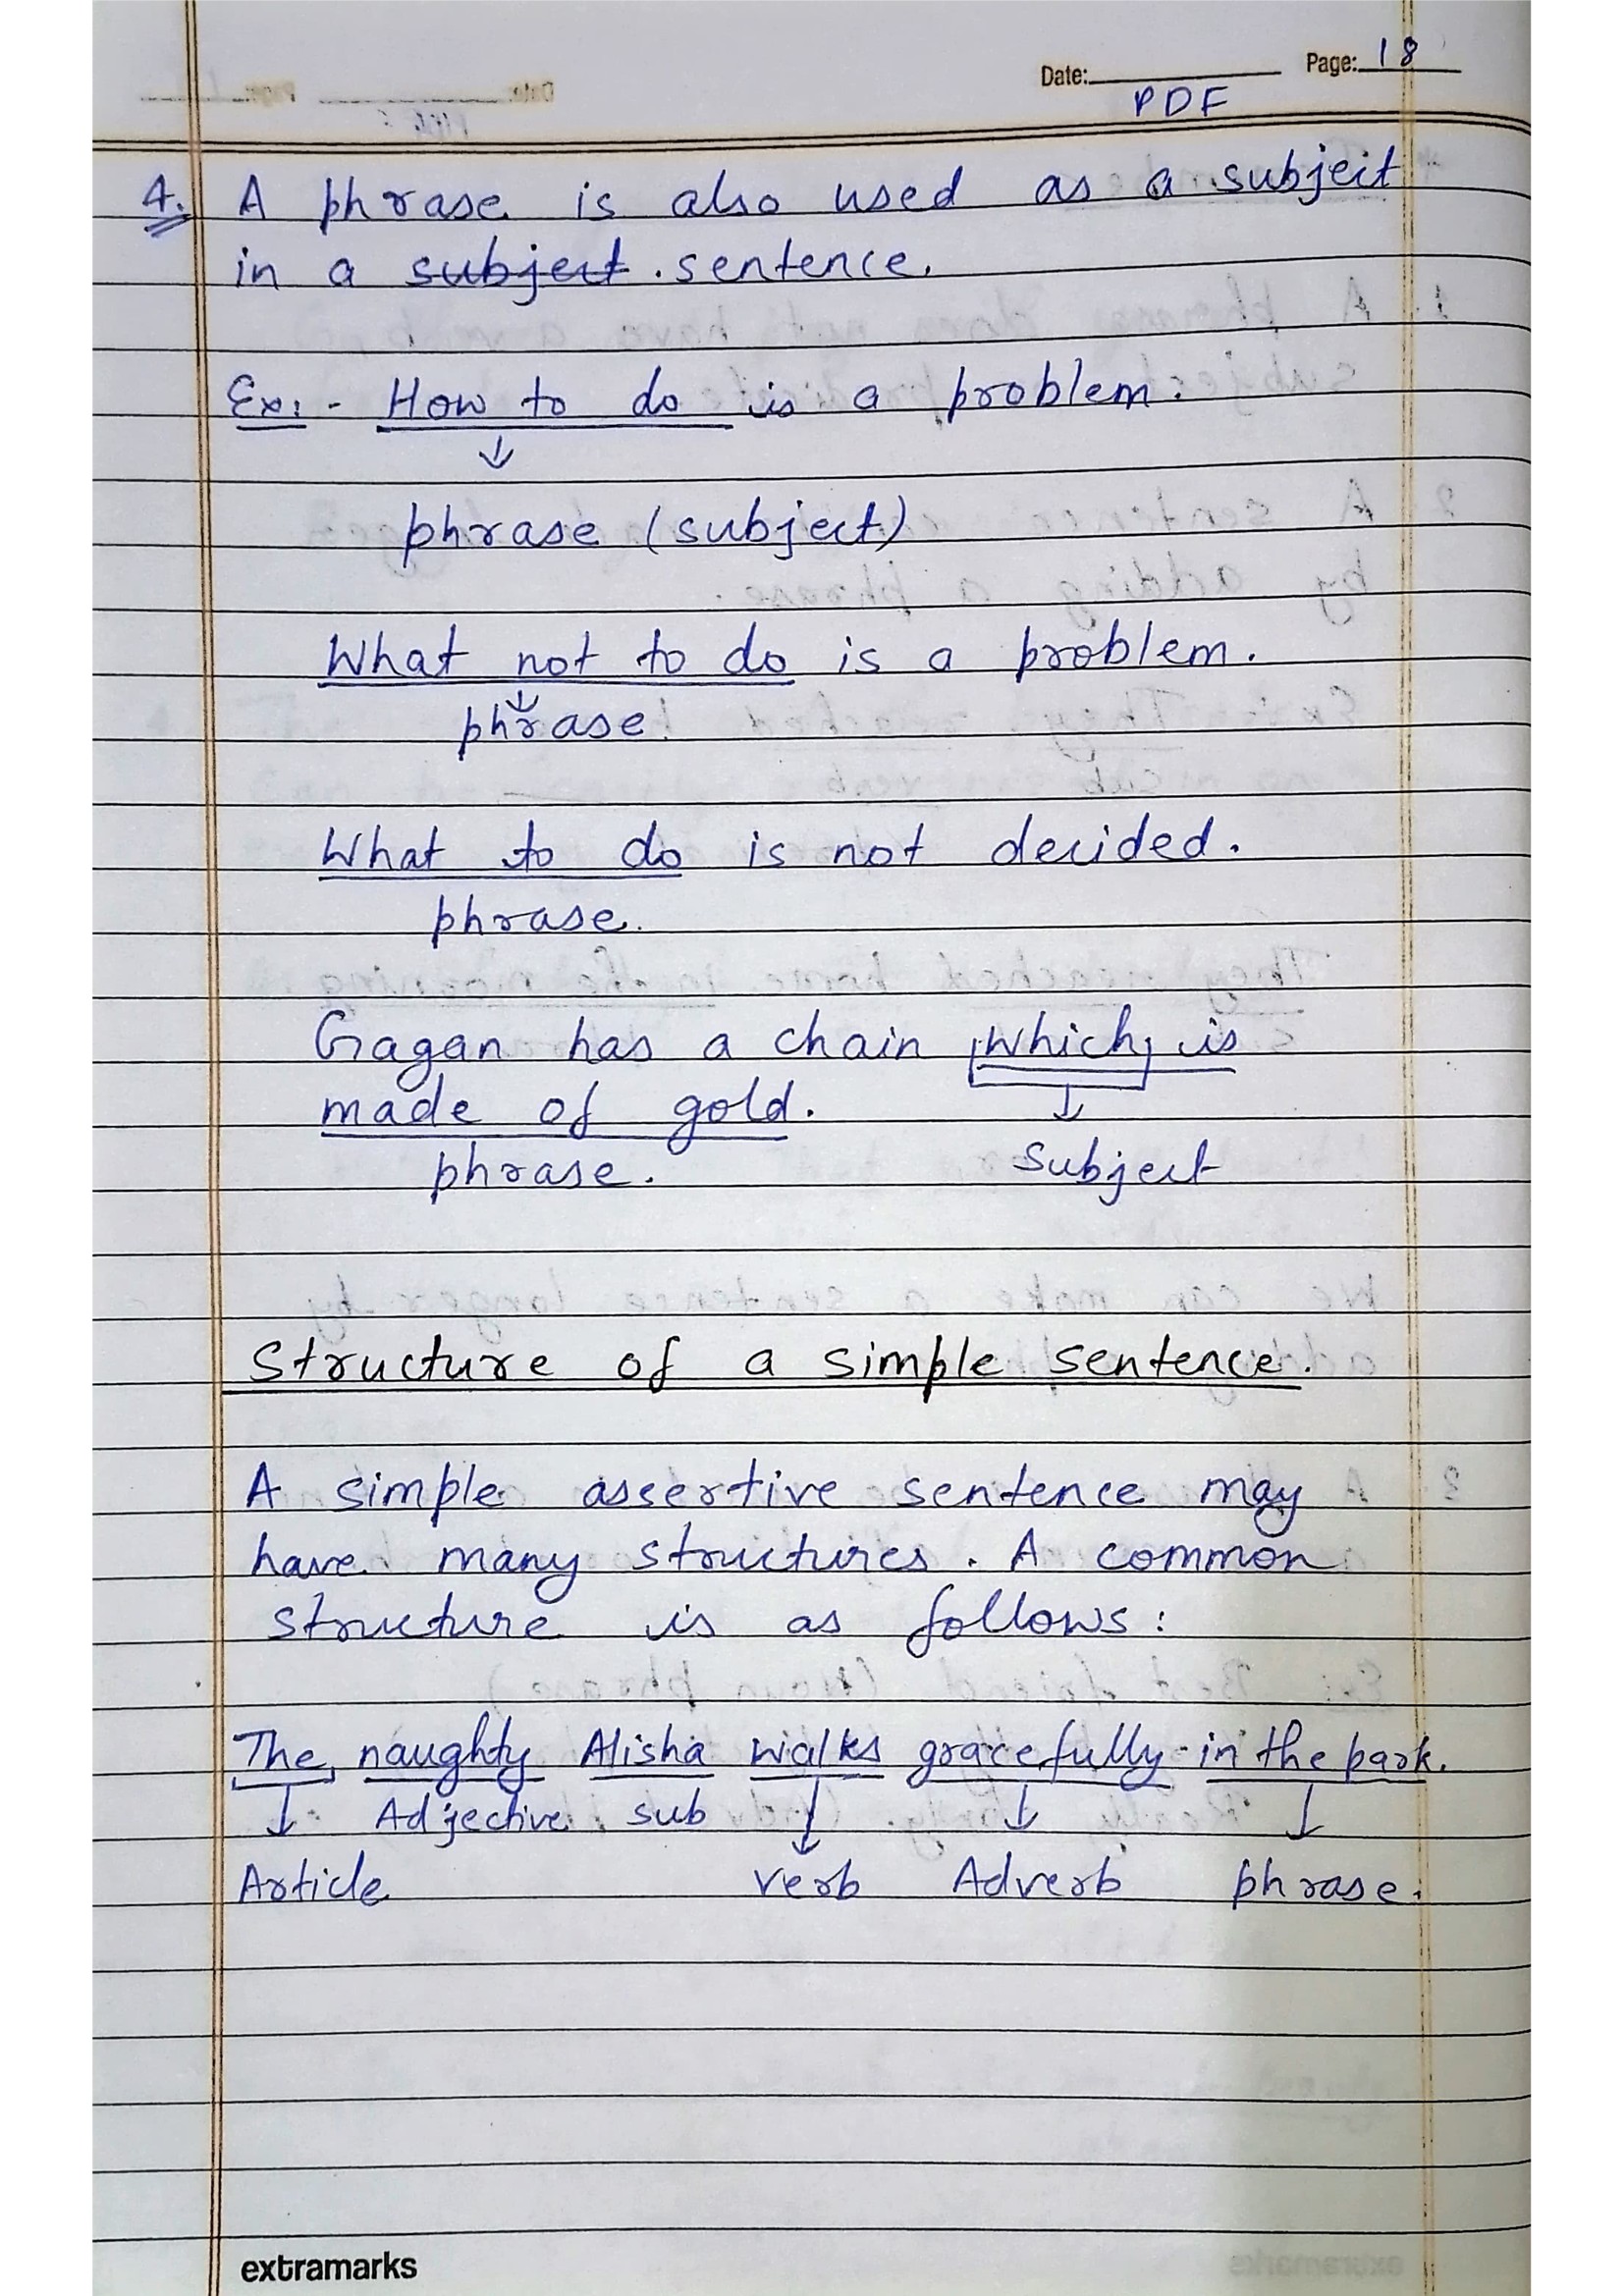 Date: Page: 18
PDF
4. A phrase is also used as a subject
in a subject . sentence.
Ex:- How to do is a problem.
phrase (subject)
What not to do is a problem.
phrase
What to do is not decided.
phrase.
Gagan has a chain which is
made of gold.
phrase. Subject
Structure of a simple sentence.
A simple assertive sentence may
have many structures. A common
structure is as follows:
The naughty Alisha walks gracefully in the park.
Adjective sub
Article verb Adverb phrase.
extramarks